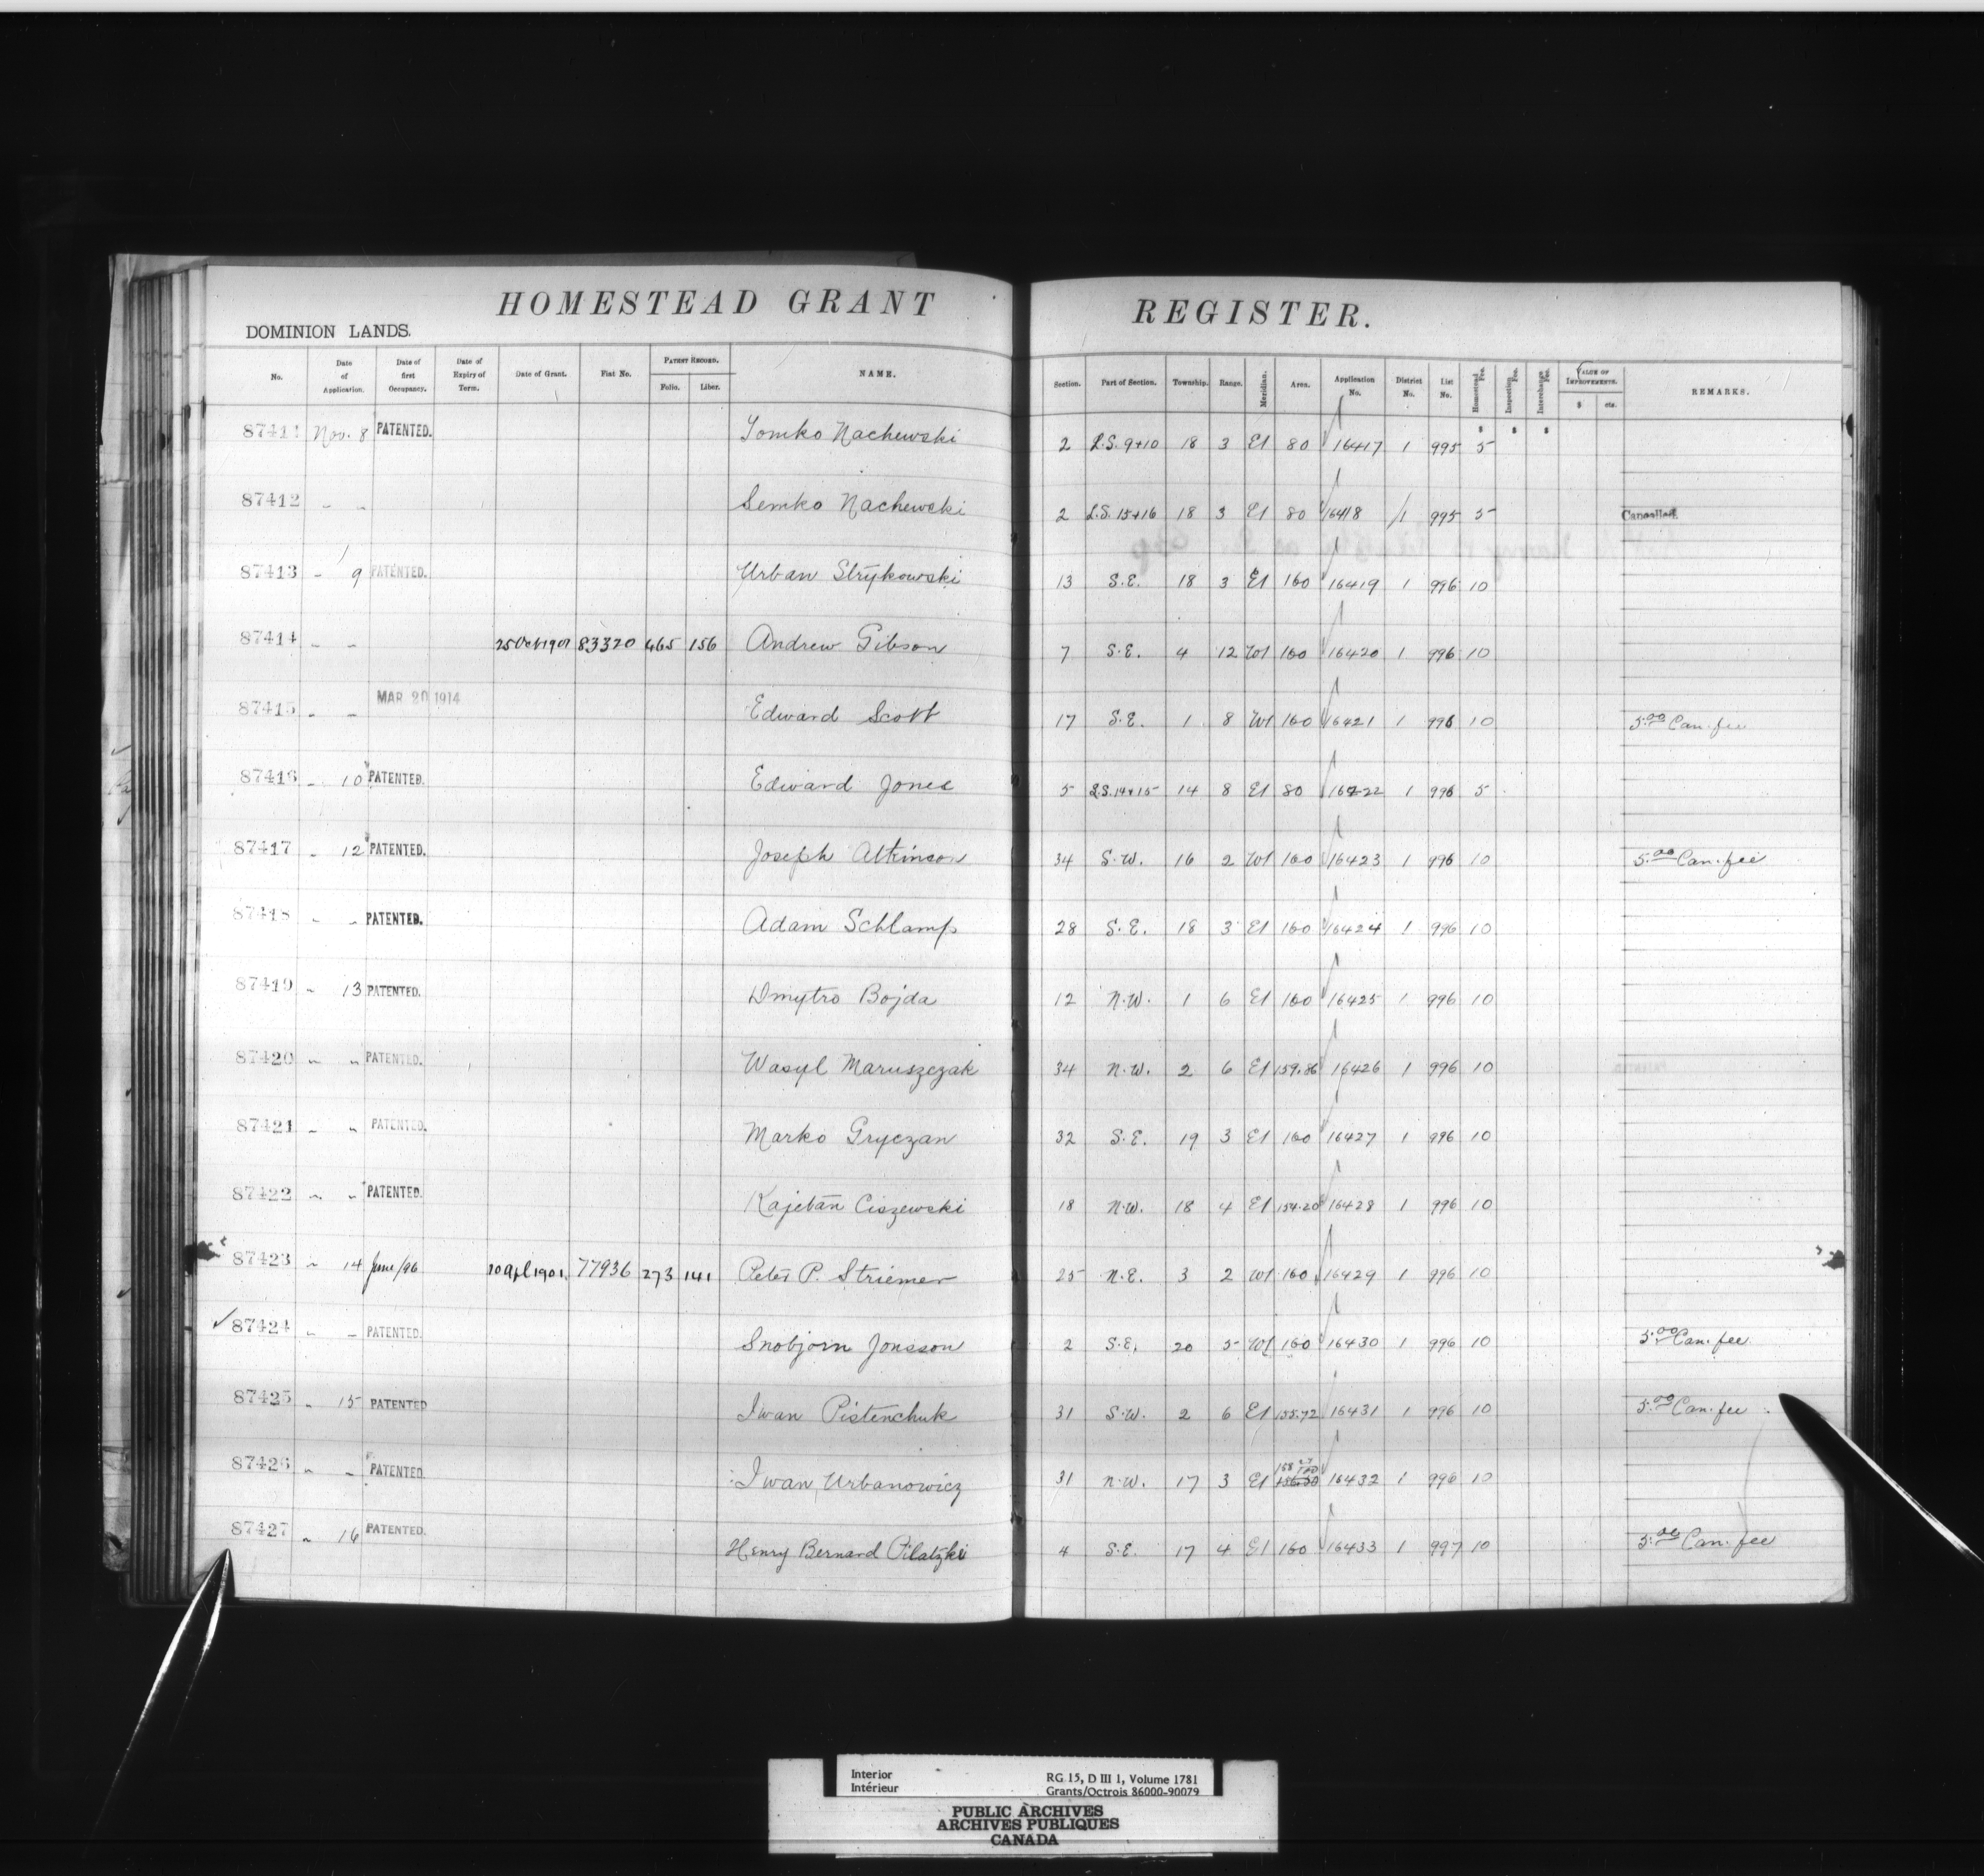 HOMESTEAD GRANT REGISTER.
DOMINION LANDS.
No. Date of Application. Date of first Occupancy. Date of Expiry of Term. Date of Grant. Fiat No. PATENT RECORD. Folio. Liber. NAME. Section. Part of Section. Township. Range. Meridian. Area. Application No. District No. List No. Homestead Fee. Inspection Fee. Interchange Fee. VALUE OF IMPROVEMENTS. $ cts. REMARKS.
87411 Nov. 8 PATENTED. Tomko Nachewski 2 L.S. 9+10 18 3 E1 80 16417 1 995 5
87412 " " Semko Nachewski 2 L.S. 15+16 18 3 E1 80 16418 1 995 5 Cancelled.
87413 " 9 PATENTED. Urban Strykowski 13 S.E. 18 3 E1 160 16419 1 996 10
87414 " " 25 Oct 1901 83320 465 156 Andrew Gibson 7 S.E. 4 12 W1 160 16420 1 996 10
87415 " " MAR 20 1914 Edward Scott 17 S.E. 1 8 W1 160 16421 1 996 10 5.00 Can. fee
87416 " 10 PATENTED. Edward Jones 5 L.S. 14+15 14 8 E1 80 16422 1 996 5
87417 " 12 PATENTED. Joseph Atkinson 34 S.W. 16 2 W1 160 16423 1 996 10 5.00 Can. fee
87418 " " PATENTED. Adam Schlamp 28 S.E. 18 3 E1 160 16424 1 996 10
87419 " 13 PATENTED. Dmytro Bojda 12 N.W. 1 6 E1 160 16425 1 996 10
87420 " " PATENTED. Wasyl Maruszczak 34 N.W. 2 6 E1 159.86 16426 1 996 10
87421 " " PATENTED. Marko Gryczan 32 S.E. 19 3 E1 160 16427 1 996 10
87422 " " PATENTED. Kajetan Ciszewski 18 N.W. 18 4 E1 154.20 16428 1 996 10
87423 " 14 June/96 10 Apl 1901. 77936 273 141 Peter P. Striemer 25 N.E. 3 2 W1 160 16429 1 996 10
87424 " " PATENTED. Snobjorn Jonsson 2 S.E. 20 5 W1 160 16430 1 996 10 5.00 Can. fee
87425 " 15 PATENTED Iwan Pistenchuk 31 S.W. 2 6 E1 155.72 16431 1 996 10 5.00 Can. fee
87426 " " PATENTED. Iwan Urbanowicz 31 N.W. 17 3 E1 16432 1 996 10
87427 " 16 PATENTED. Henry Bernard Pilatzki 4 S.E. 17 4 E1 160 16433 1 997 10 5.00 Can. fee
Interior RG 15, D III 1, Volume 1781
Intérieur Grants/Octrois 86000-90079
PUBLIC ARCHIVES
ARCHIVES PUBLIQUES
CANADA